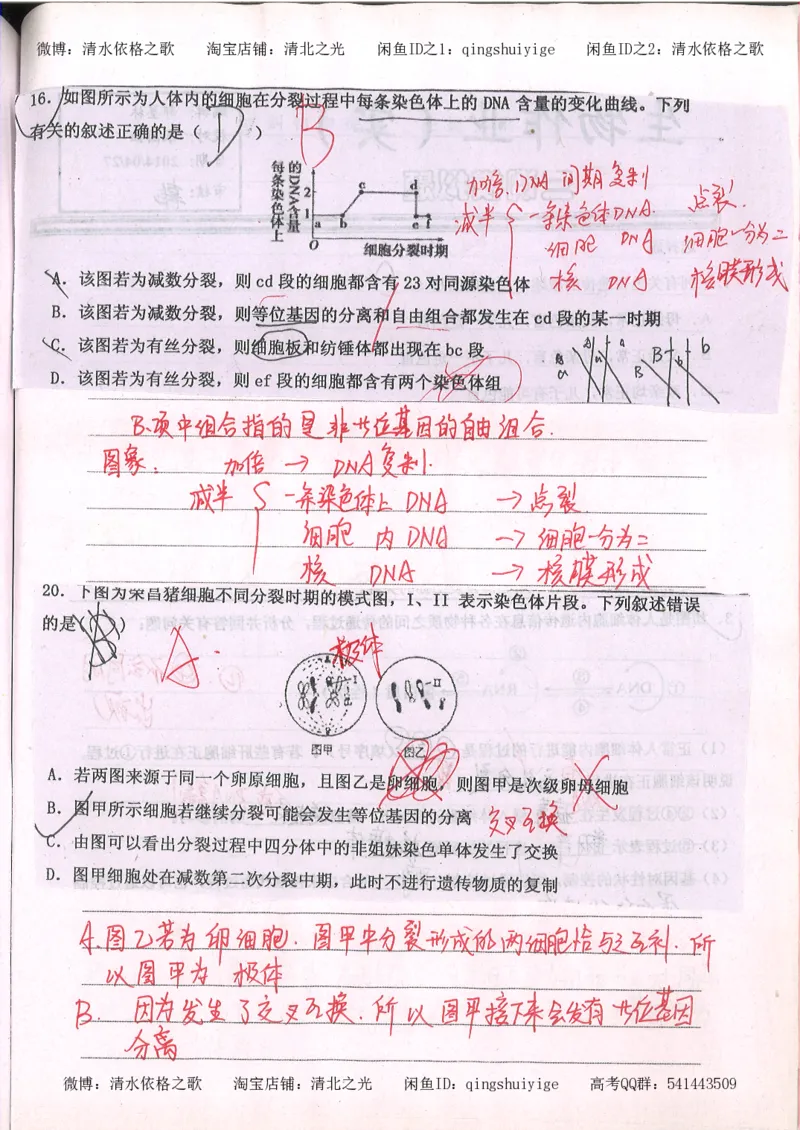 微博：清水依格之歌 淘宝店铺：清北之光 闲鱼ID之1：qingshuiyige 闲鱼ID之2：清水依格之歌
16．如图所示为人体内的细胞在分裂过程中每条染色体上的 DNA 含量的变化曲线。下列
有关的叙述正确的是（ D ） B
每条染色体上的DNA含量
2 c d
1 a b e f
0
细胞分裂时期
加倍：DNA 间期复制
减半 一条染色体DNA. 点裂.
细胞 DNA 细胞一分为二
核 DNA 核膜形成
A．该图若为减数分裂，则 cd 段的细胞都含有 23 对同源染色体
B．该图若为减数分裂，则等位基因的分离和自由组合都发生在 cd 段的某一时期
C．该图若为有丝分裂，则细胞板和纺锤体都出现在 bc 段
D．该图若为有丝分裂，则 ef 段的细胞都含有两个染色体组
B.项中组合指的是非等位基因的自由组合.
图象： 加倍 → DNA复制.
减半 一条染色体上 DNA → 点裂
细胞 内 DNA → 细胞一分为二
核 DNA → 核膜形成
20．下图为荣昌猪细胞不同分裂时期的模式图，I、II 表示染色体片段。下列叙述错误
的是（ ）
A.
极体
I II
图甲 图乙
A．若两图来源于同一个卵原细胞，且图乙是卵细胞，则图甲是次级卵母细胞
B．图甲所示细胞若继续分裂可能会发生等位基因的分离 交叉互换
C．由图可以看出分裂过程中四分体中的非姐妹染色单体发生了交换
D．图甲细胞处在减数第二次分裂中期，此时不进行遗传物质的复制
A.图乙若为卵细胞. 图甲中分裂形成的两细胞恰与之互补. 所
以图甲为 极体
B. 因为发生了交叉互换. 所以图甲接下来会发有等位基因
分离
微博：清水依格之歌 淘宝店铺：清北之光 闲鱼ID：qingshuiyige 高考QQ群：541443509